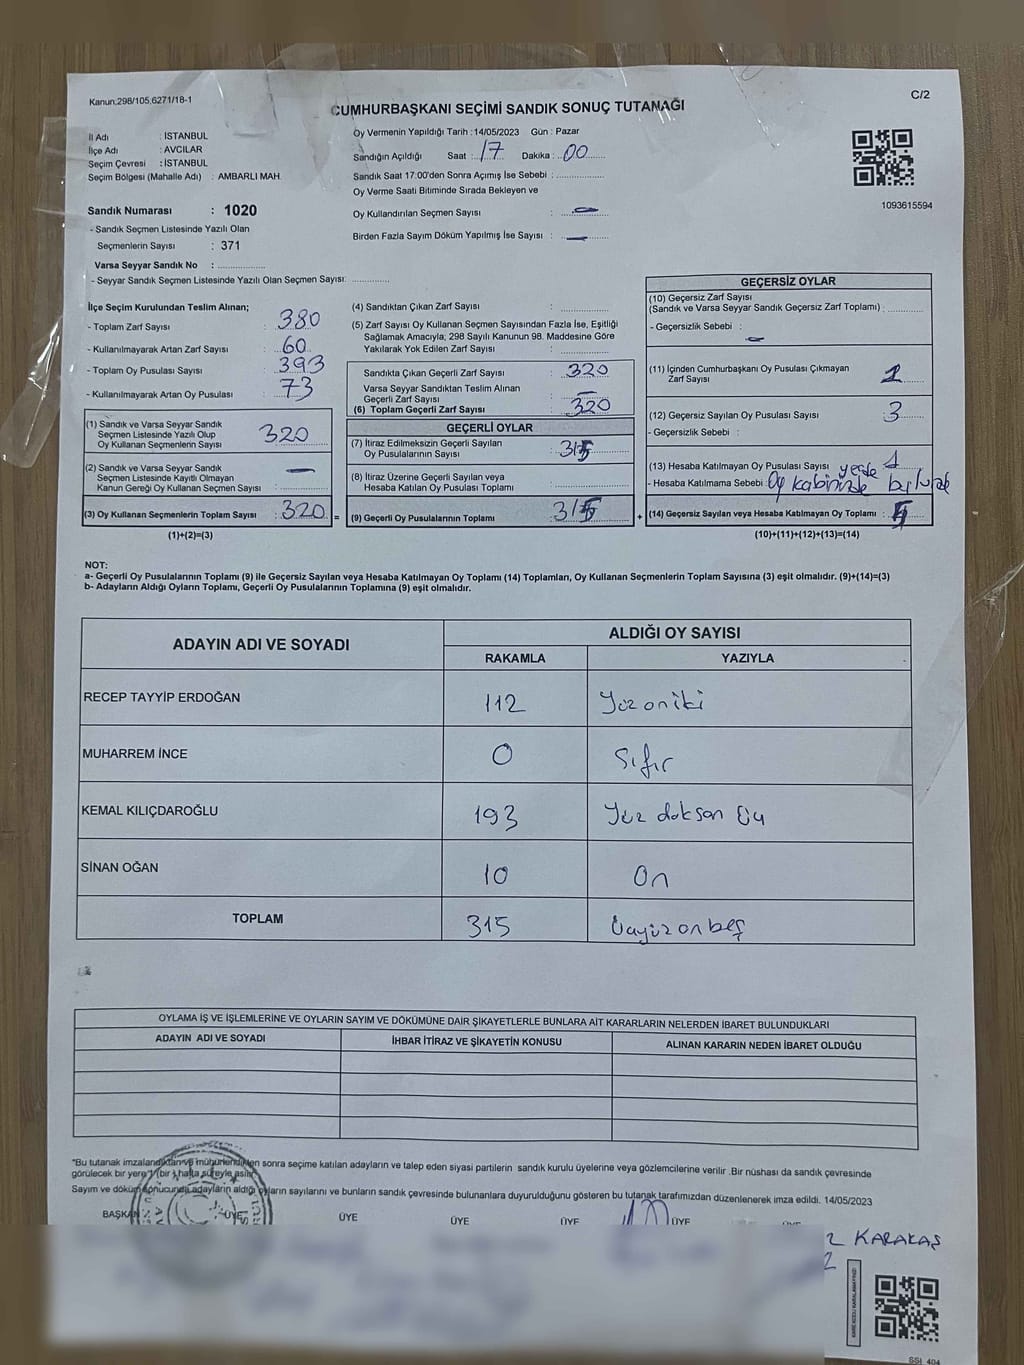 Kanun:298/105,6271/18-1
C/2
CUMHURBAŞKANI SEÇİMİ SANDIK SONUÇ TUTANAĞI
İl Adı : İSTANBUL
İlçe Adı : AVCILAR
Seçim Çevresi : İSTANBUL
Seçim Bölgesi (Mahalle Adı) : AMBARLI MAH.
Oy Vermenin Yapıldığı Tarih : 14/05/2023 Gün : Pazar
Sandığın Açıldığı Saat : 17 Dakika : 00
Sandık Saat 17:00'den Sonra Açımış İse Sebebi :
Oy Verme Saati Bitiminde Sırada Bekleyen ve
Oy Kullandırılan Seçmen Sayısı : -
Birden Fazla Sayım Döküm Yapılmış İse Sayısı : -
1093615594
Sandık Numarası : 1020
- Sandık Seçmen Listesinde Yazılı Olan
Seçmenlerin Sayısı : 371
Varsa Seyyar Sandık No :
- Seyyar Sandık Seçmen Listesinde Yazılı Olan Seçmen Sayısı:
İlçe Seçim Kurulundan Teslim Alınan;
- Toplam Zarf Sayısı : 380
- Kullanılmayarak Artan Zarf Sayısı : 60
- Toplam Oy Pusulası Sayısı : 393
- Kullanılmayarak Artan Oy Pusulası : 73
(1) Sandık ve Varsa Seyyar Sandık
Seçmen Listesinde Yazılı Olup
Oy Kullanan Seçmenlerin Sayısı : 320
(2) Sandık ve Varsa Seyyar Sandık
Seçmen Listesinde Kayıtlı Olmayan
Kanun Gereği Oy Kullanan Seçmen Sayısı : -
(3) Oy Kullanan Seçmenlerin Toplam Sayısı : 320
(1)+(2)=(3)
(4) Sandıktan Çıkan Zarf Sayısı :
(5) Zarf Sayısı Oy Kullanan Seçmen Sayısından Fazla İse, Eşitliği
Sağlamak Amacıyla; 298 Sayılı Kanunun 98. Maddesine Göre
Yakılarak Yok Edilen Zarf Sayısı :
Sandıkta Çıkan Geçerli Zarf Sayısı : 320
Varsa Seyyar Sandıktan Teslim Alınan
Geçerli Zarf Sayısı : -
(6) Toplam Geçerli Zarf Sayısı : 320
GEÇERLİ OYLAR
(7) İtiraz Edilmeksizin Geçerli Sayılan
Oy Pusulalarının Sayısı : 315
(8) İtiraz Üzerine Geçerli Sayılan veya
Hesaba Katılan Oy Pusulası Toplamı :
= (9) Geçerli Oy Pusulalarının Toplamı : 315
GEÇERSİZ OYLAR
(10) Geçersiz Zarf Sayısı
(Sandık ve Varsa Seyyar Sandık Geçersiz Zarf Toplamı) :
- Geçersizlik Sebebi : -
(11) İçinden Cumhurbaşkanı Oy Pusulası Çıkmayan
Zarf Sayısı : 1
(12) Geçersiz Sayılan Oy Pusulası Sayısı : 3
- Geçersizlik Sebebi :
(13) Hesaba Katılmayan Oy Pusulası Sayısı yerde 1
- Hesaba Katılmama Sebebi : Oy kabininde bulundu
+ (14) Geçersiz Sayılan veya Hesaba Katılmayan Oy Toplamı : 5
(10)+(11)+(12)+(13)=(14)
NOT:
a- Geçerli Oy Pusulalarının Toplamı (9) ile Geçersiz Sayılan veya Hesaba Katılmayan Oy Toplamı (14) Toplamları, Oy Kullanan Seçmenlerin Toplam Sayısına (3) eşit olmalıdır. (9)+(14)=(3)
b- Adayların Aldığı Oyların Toplamı, Geçerli Oy Pusulalarının Toplamına (9) eşit olmalıdır.
ADAYIN ADI VE SOYADI ALDIĞI OY SAYISI
RAKAMLA YAZIYLA
RECEP TAYYİP ERDOĞAN 112 Yüz oniki
MUHARREM İNCE 0 Sıfır
KEMAL KILIÇDAROĞLU 193 Yüz doksan üç
SİNAN OĞAN 10 On
TOPLAM 315 Üçyüz on beş
OYLAMA İŞ VE İŞLEMLERİNE VE OYLARIN SAYIM VE DÖKÜMÜNE DAİR ŞİKAYETLERLE BUNLARA AİT KARARLARIN NELERDEN İBARET BULUNDUKLARI
ADAYIN ADI VE SOYADI İHBAR İTİRAZ VE ŞİKAYETİN KONUSU ALINAN KARARIN NEDEN İBARET OLDUĞU
"Bu tutanak imzalandıktan ve mühürlendikten sonra seçime katılan adayların ve talep eden siyasi partilerin sandık kurulu üyelerine veya gözlemcilerine verilir .Bir nüshası da sandık çevresinde
görülecek bir yere 1 (bir ) hafta süreyle asılır"
Sayım ve döküm sonucunda adayların aldığı oyların sayılarını ve bunların sandık çevresinde bulunanlara duyurulduğunu gösteren bu tutanak tarafımızdan düzenlenerek imza edildi. 14/05/2023
BAŞKAN ÜYE ÜYE ÜYE ÜYE ÜYE ÜYE
KARAKAŞ
SSİ 404